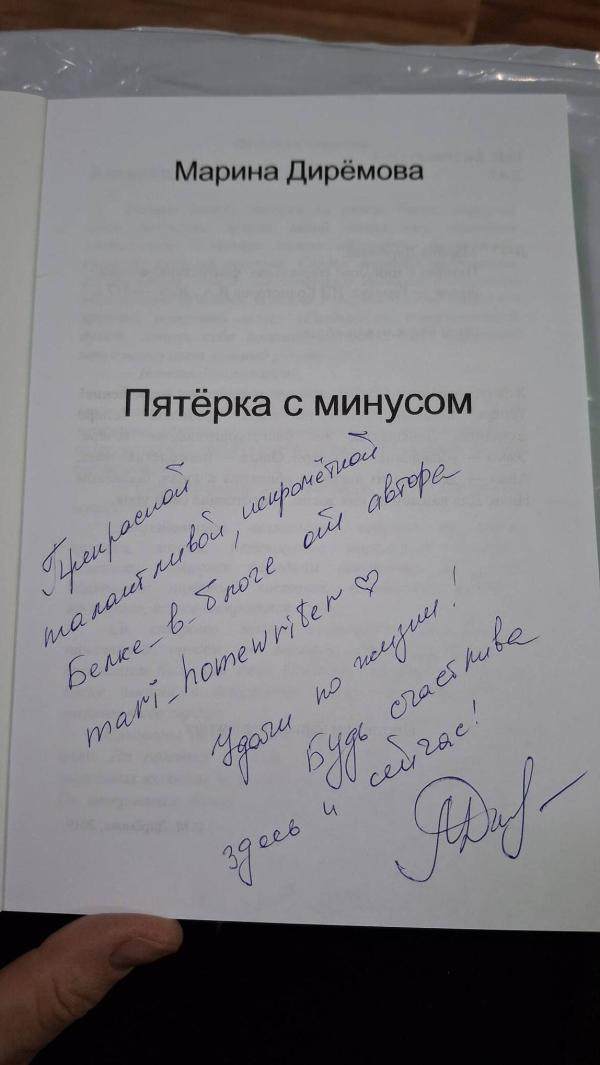 Марина Дирёмова
Пятёрка с минусом
Прекрасной
талантливой, искромётной
Белке_в_блоге от автора
mari_homewriter ♡
Удачи по жизни!
Будь счастлива
здесь и сейчас!